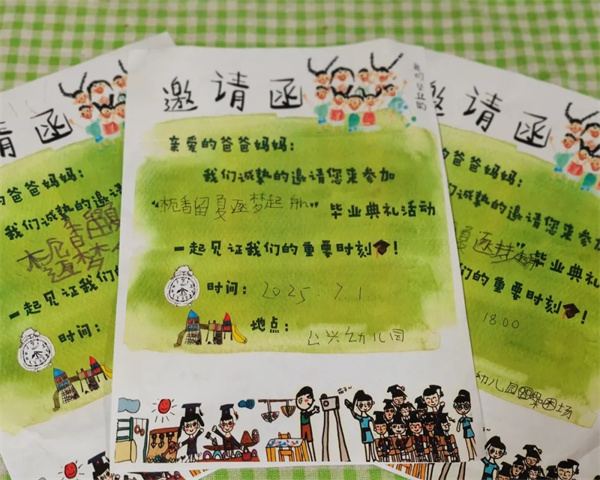 函
的爸爸妈妈：
我们诚挚的邀
栀香留夏
逐梦
一起见证我们的
时间：
邀请函
亲爱的爸爸妈妈：
我们诚挚的邀请您来参加
“栀香留夏逐梦起航”毕业典礼活动
一起见证我们的重要时刻！
时间：2025.7.1
地点：公兴幼儿园
请函
的爸爸妈妈：
们诚挚的邀请您来参加
夏逐梦 毕业典礼活动
证我们的重要时刻！
18:00
幼儿园